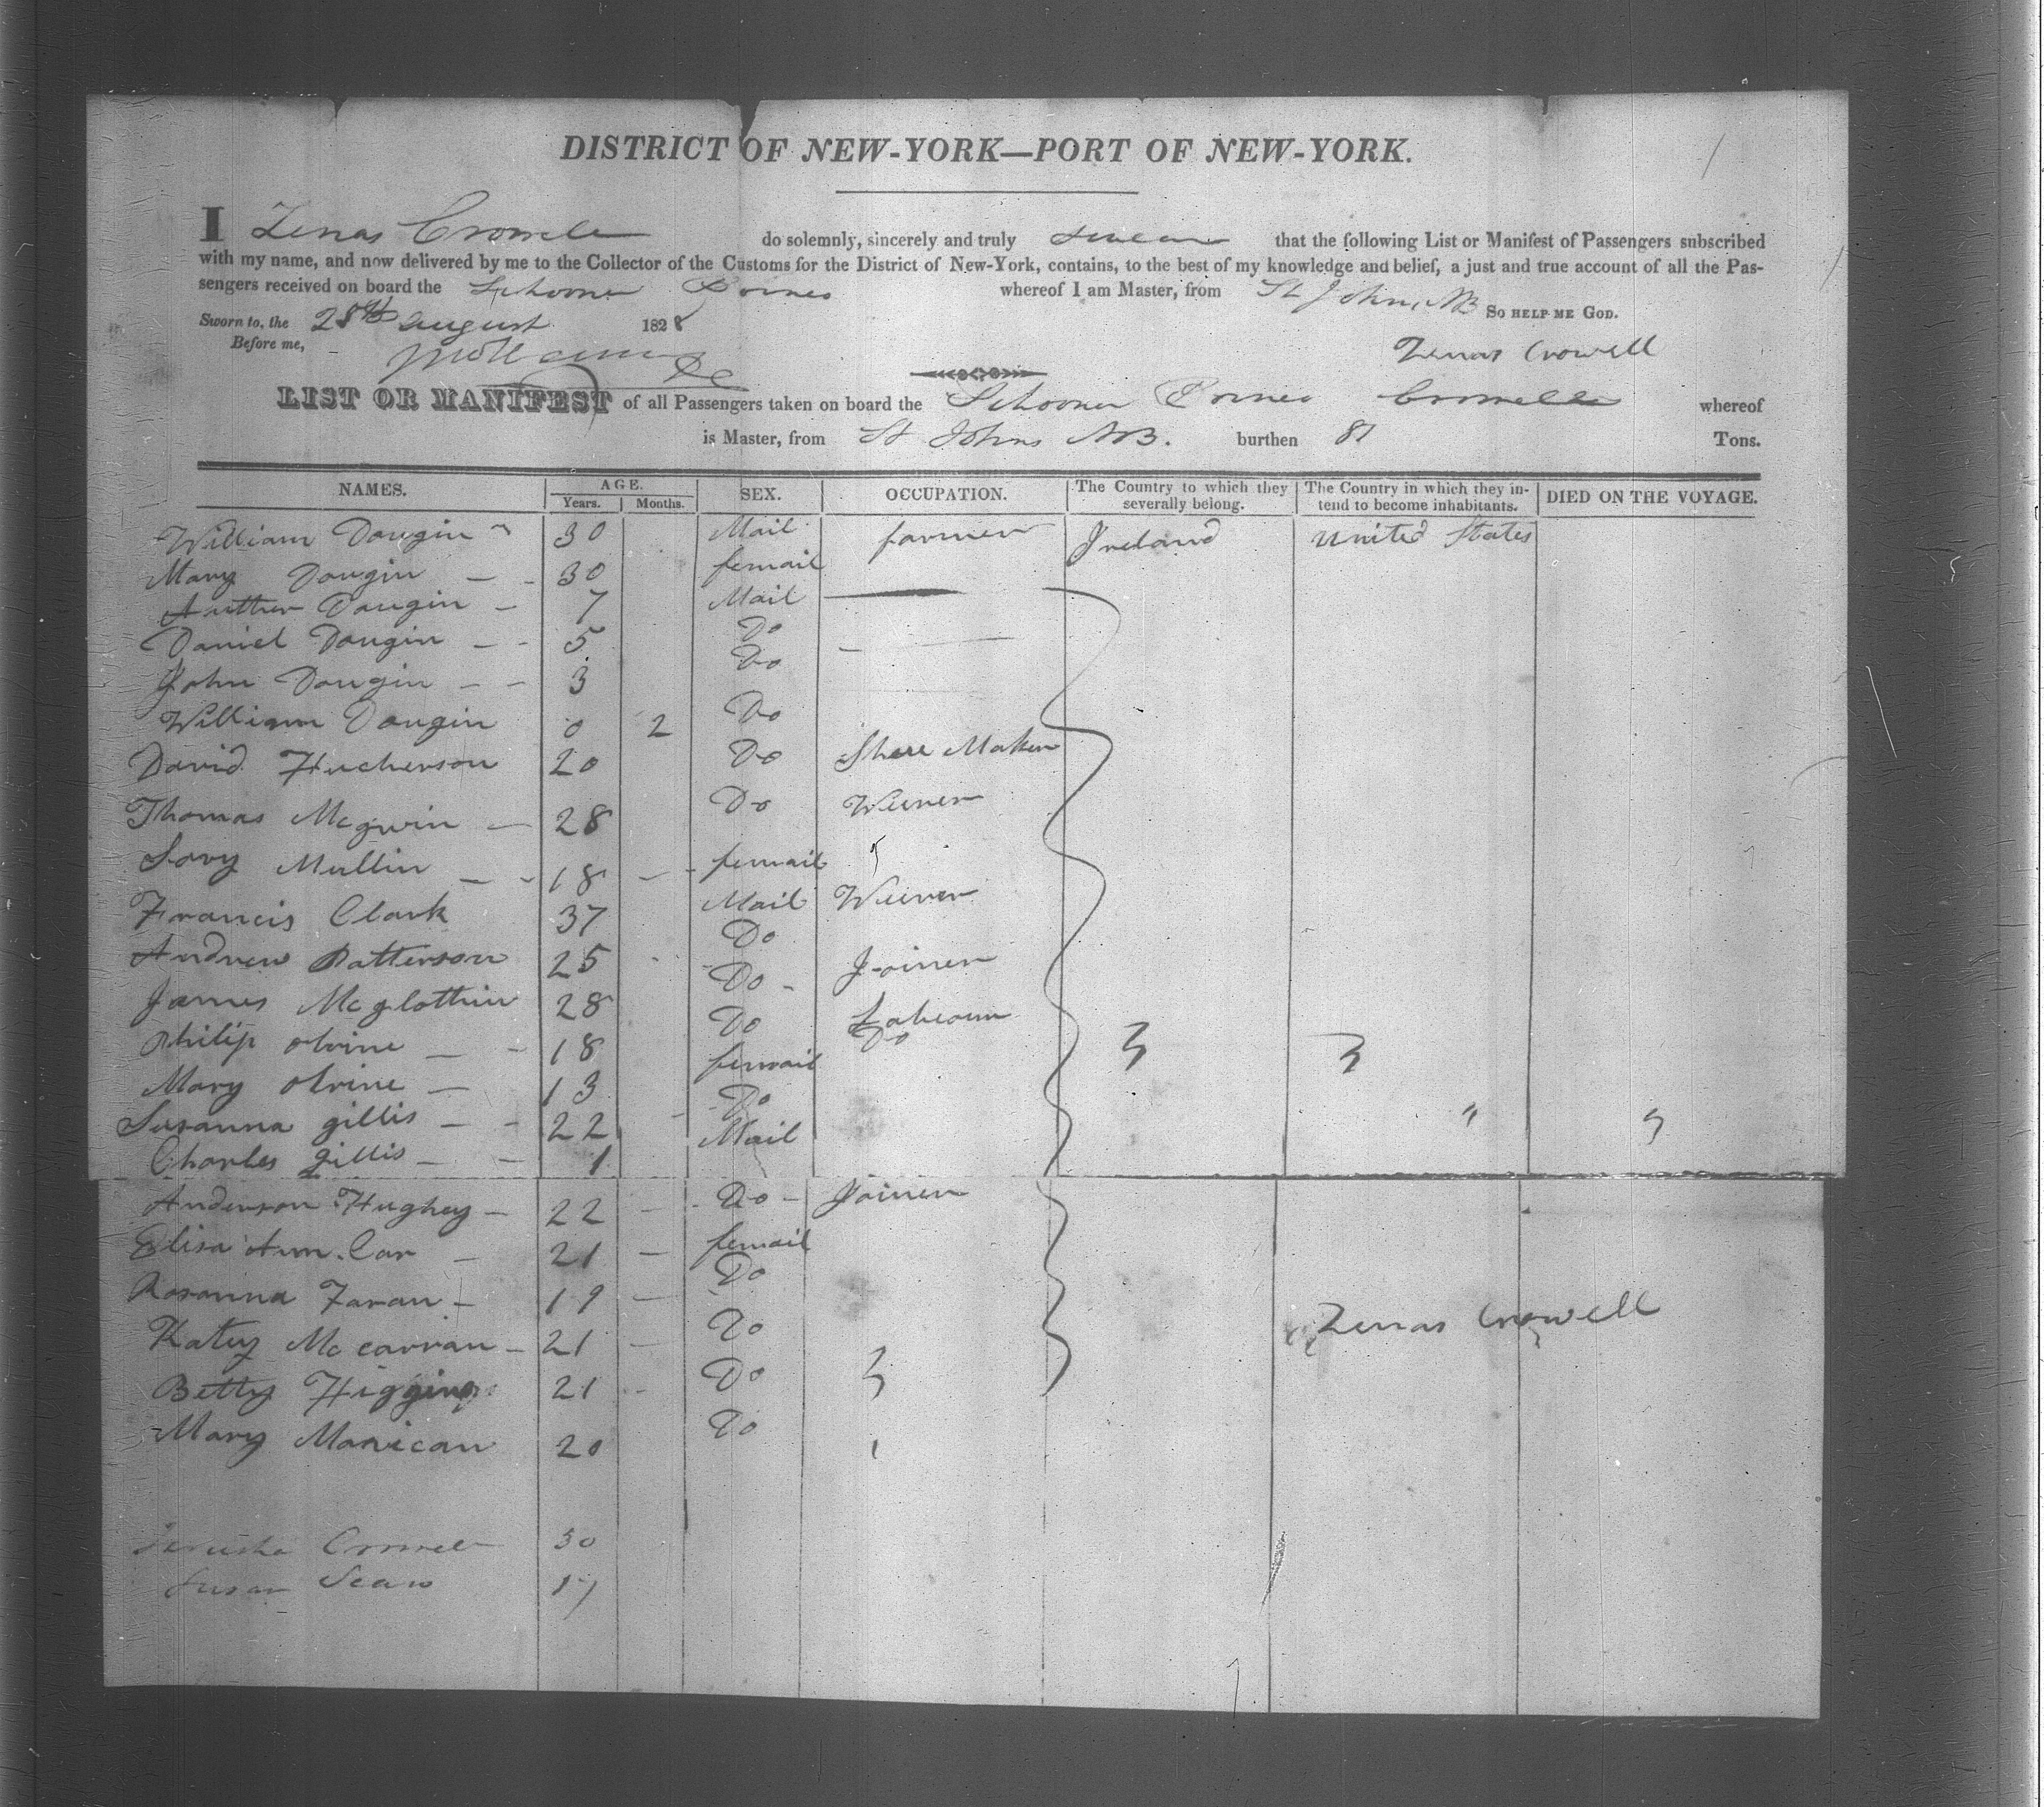 DISTRICT OF NEW-YORK—PORT OF NEW-YORK.
I Zenas Crowell do solemnly, sincerely and truly swear that the following List or Manifest of Passengers subscribed
with my name, and now delivered by me to the Collector of the Customs for the District of New-York, contains, to the best of my knowledge and belief, a just and true account of all the Pas-
sengers received on board the Schooner whereof I am Master, from St John, NB So help me God.
Sworn to, the 28th august 1828
Before me,
Zenas Crowell
LIST OR MANIFEST of all Passengers taken on board the Schooner Crowell whereof
is Master, from St Johns NB. burthen 81 Tons.
NAMES. AGE. Years. Months. SEX. OCCUPATION. The Country to which they severally belong. The Country in which they in-tend to become inhabitants. DIED ON THE VOYAGE.
William Dougin 30 Mail farmer Ireland United States
Mary Dougin 30 femail
Auther Dougin 7 Mail
Daniel Dougin 5 Do
John Dougin 3 Do
William Dougin 0 2 Do
David Hucherson 20 Do Shore Maker
Thomas Mcgwin 28 Do Weiver
Mullin 18 femail
Francis Clark 37 Mail Weiver
Andrew Patterson 25 Do Joiner
James Mcglothin 28 Do
Philip 18 Do Do
Mary 13 femail
Susanna gillis 22 Do
Charles gillis 1 Mail
Anderson Hughey 22 Do Joiner
Elisa Ann Car 21 femail
Rosanna Faran 19 Do
Katey Mccarran 21 Do
Zenas Crowell
Betty Higgins 21 Do
Mary Manican 20 Do
Jerusha Crowell 30
Susan Sears 17